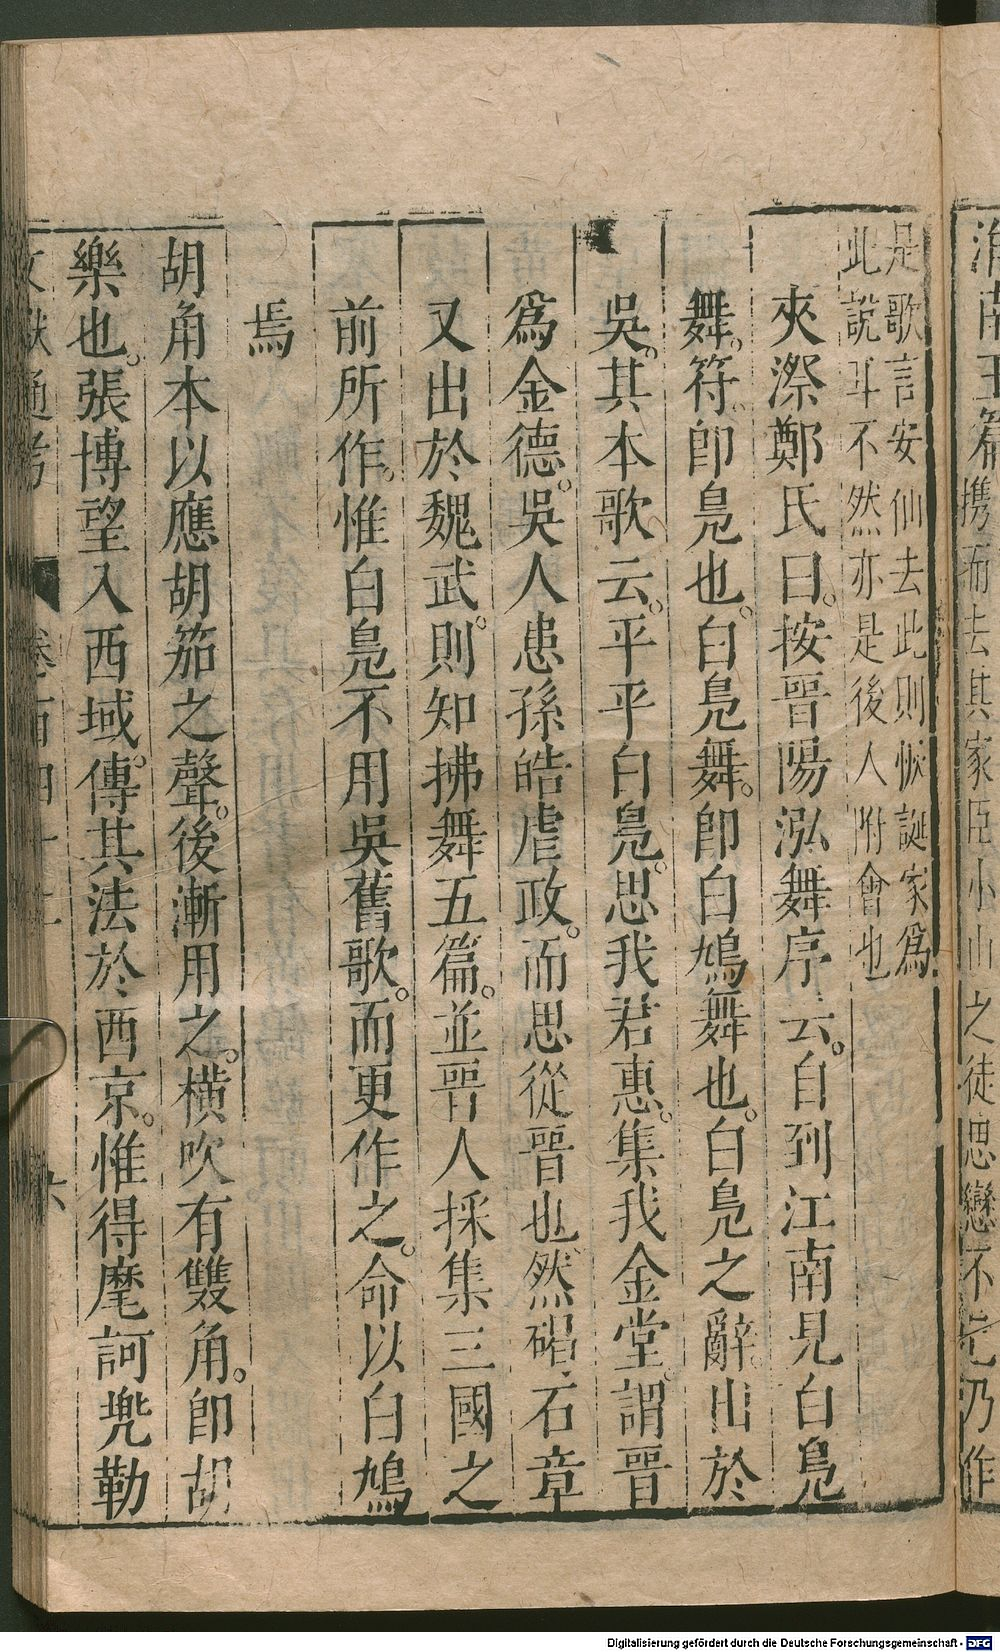 淮南王篇携而去其家臣小山之徒思戀不已乃作
是歌言安仙去此則恢誕家爲
此說耳不然亦是後人附會也
夾漈鄭氏曰。按晉陽泓舞序云。自到江南見白鳧
舞。符即鳧也。白鳧舞。即白鳩舞也。白鳧之辭。出於
吳。其本歌云。平平白鳧。思我君惠。集我金堂。謂晉
爲金德。吳人患孫皓虐政。而思從晉也。然碣石章
又出於魏武。則知拂舞五篇。並晉人採集三國之
前所作。惟白鳧不用吳舊歌。而更作之。命以白鳩
焉
胡角本以應胡笳之聲。後漸用之。橫吹有雙角。即胡
樂也。張博望入西域。傳其法於西京。惟得摩訶兜勒
文獻通考 卷百四十二 六
Digitalisierung gefördert durch die Deutsche Forschungsgemeinschaft - DFG